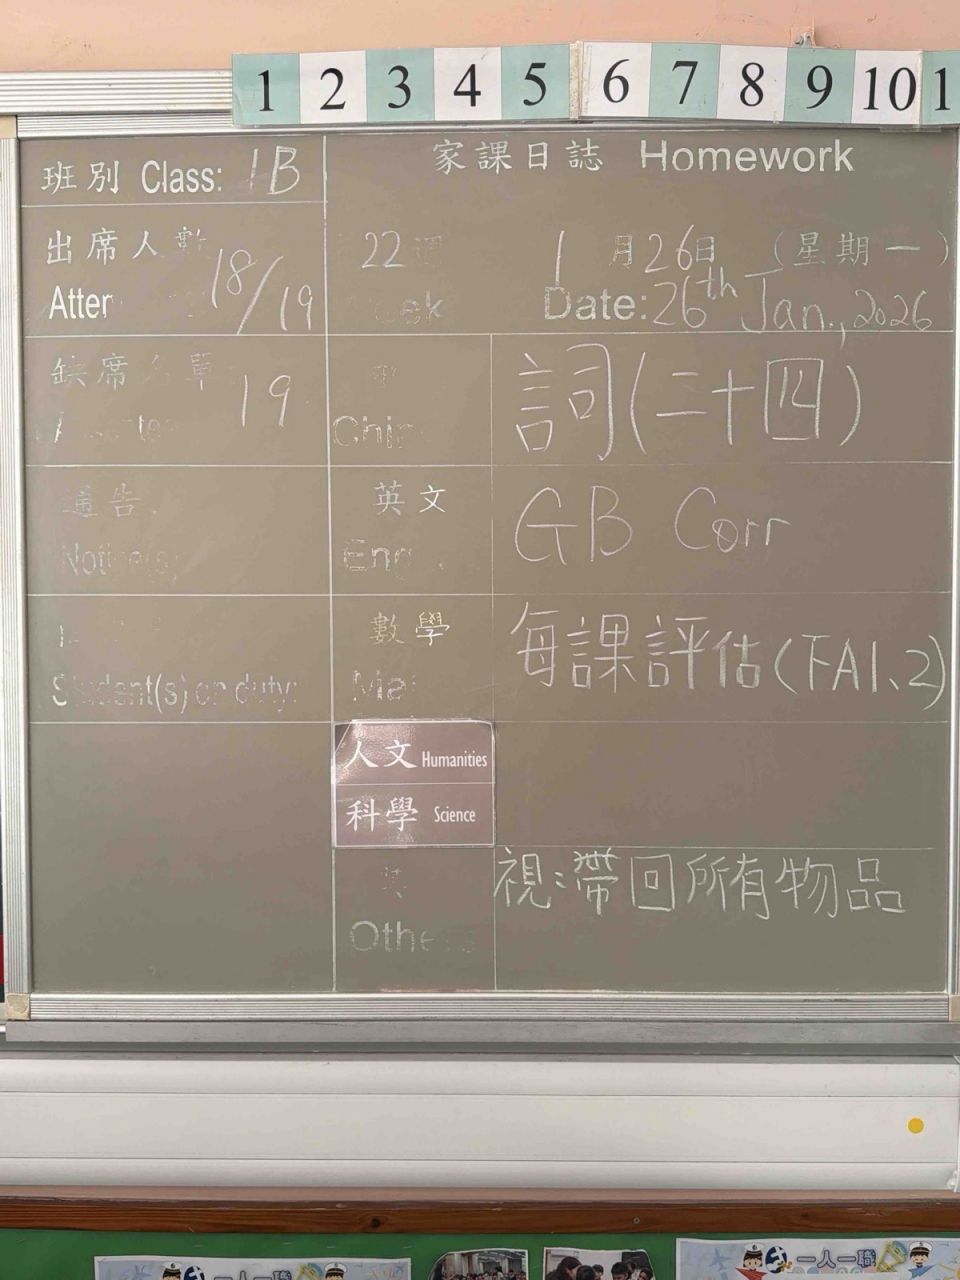 1 2 3 4 5 6 7 8 9 10 1
班別 Class: 1B
家課日誌 Homework
出席人數 18/19
Atten
22週
1月26日 (星期一)
Date: 26th Jan., 2026
缺席名單 19
中
Chin
詞(二十四)
通告
Notice(s)
英文
Eng
GB Corr
Student(s) on duty:
數學
Mat
每課評估(FA1、2)
人文 Humanities
科學 Science
其
Others
視:滯回所有物品
一人一職
一人一職